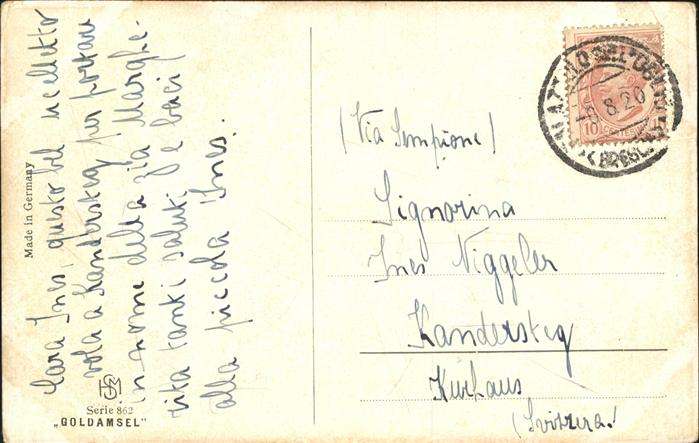 Cara Ines, questo bel uccelletto
vola a Kandersteg per portare
in nome della zia Marghe-
rita tanti saluti e baci
alla piccola Ines.
Made in Germany
Serie 862
„GOLDAMSEL"
(Via Sempione)
Signorina
Ines Niggeler
Kandersteg
Kurhaus
(Svizzera)
PALAZZOLO SULL'OGLIO
8.20
(BRESCIA)
10